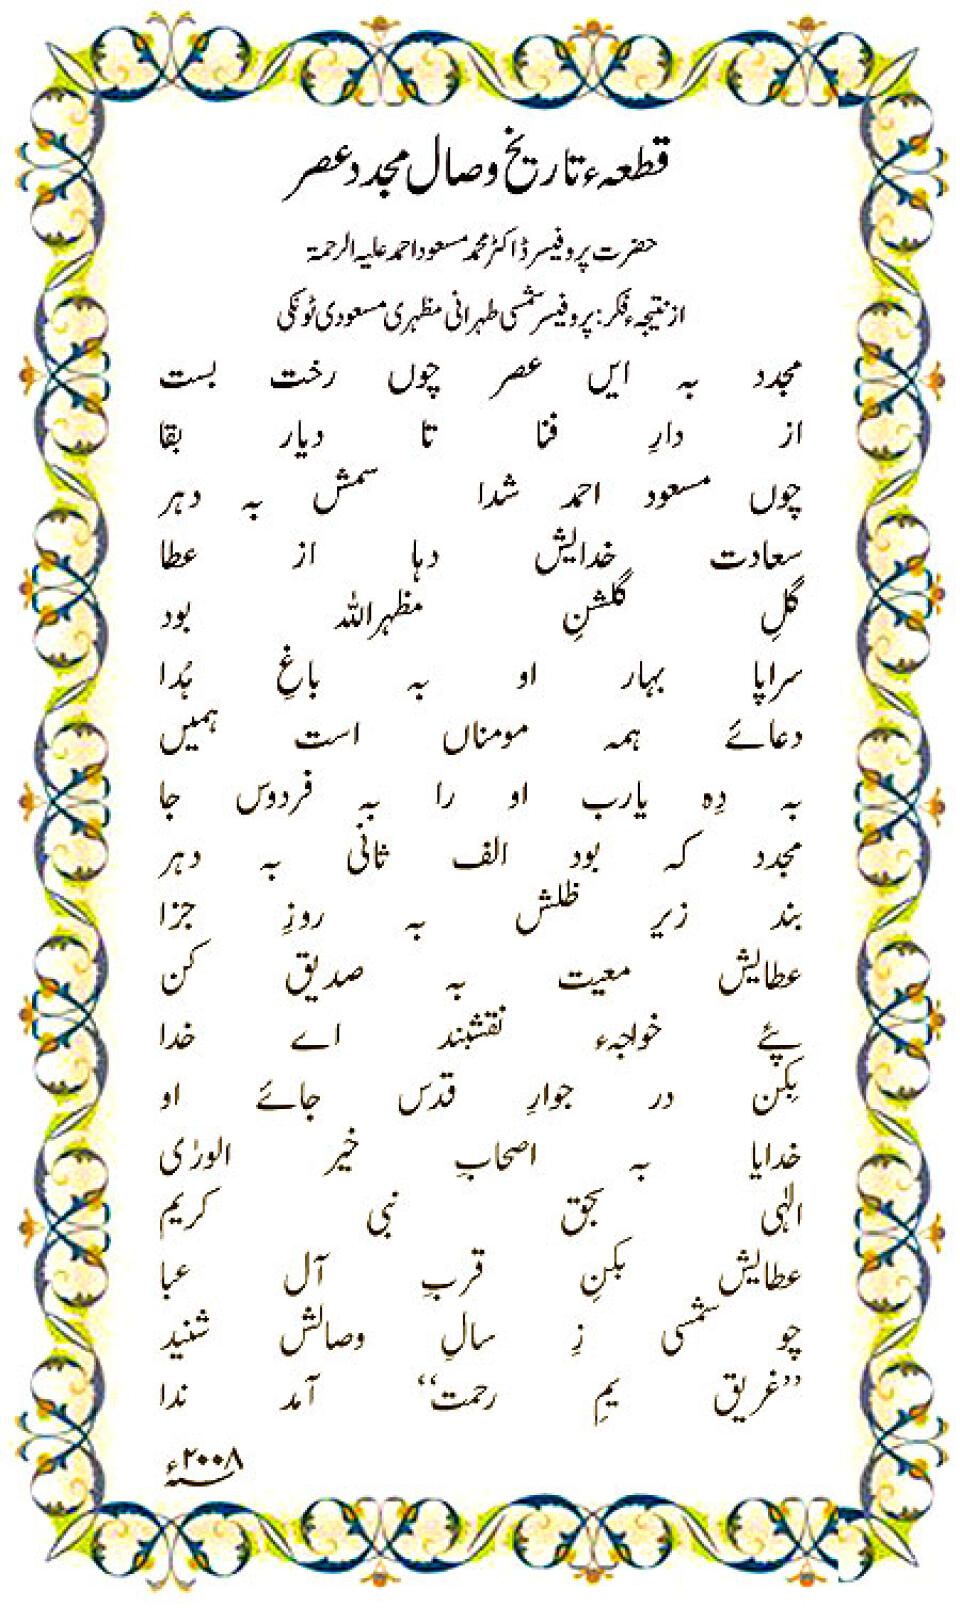 قطعہء تاریخ وصال مجدد عصر
حضرت پروفیسر ڈاکٹر محمد مسعود احمد علیہ الرحمۃ
از نتیجہء فکر: پروفیسر شمسی طہرانی مظہری مسعودی ٹونکی
مجدد بہ ایں عصر چوں رخت بست
از دارِ فنا تا دیار بقا
چوں مسعود احمد شدا سمش بہ دہر
سعادت خدایش دہا از عطا
گلِ گلشنِ مظہراللہ بود
سراپا بہار او بہ باغِ ہُدا
دعائے ہمہ مومناں است ہمیں
بہ دِہ یارب او را بہ فردوس جا
مجدد کہ بود الف ثانی بہ دہر
بند زیر ظلش بہ روزِ جزا
عطایش معیت بہ صدیق کن
پئے خواجہء نقشبند اے خدا
بِکن در جوارِ قدس جائے او
خدایا بہ اصحابِ خیر الورٰی
الٰہی بحق نبی کریم
عطایش بکنِ قربِ آل عبا
چو شمسی زِ سالِ وصالش شنید
”غریق یمِ رحمت“ آمد ندا
۲۰۰۸ء